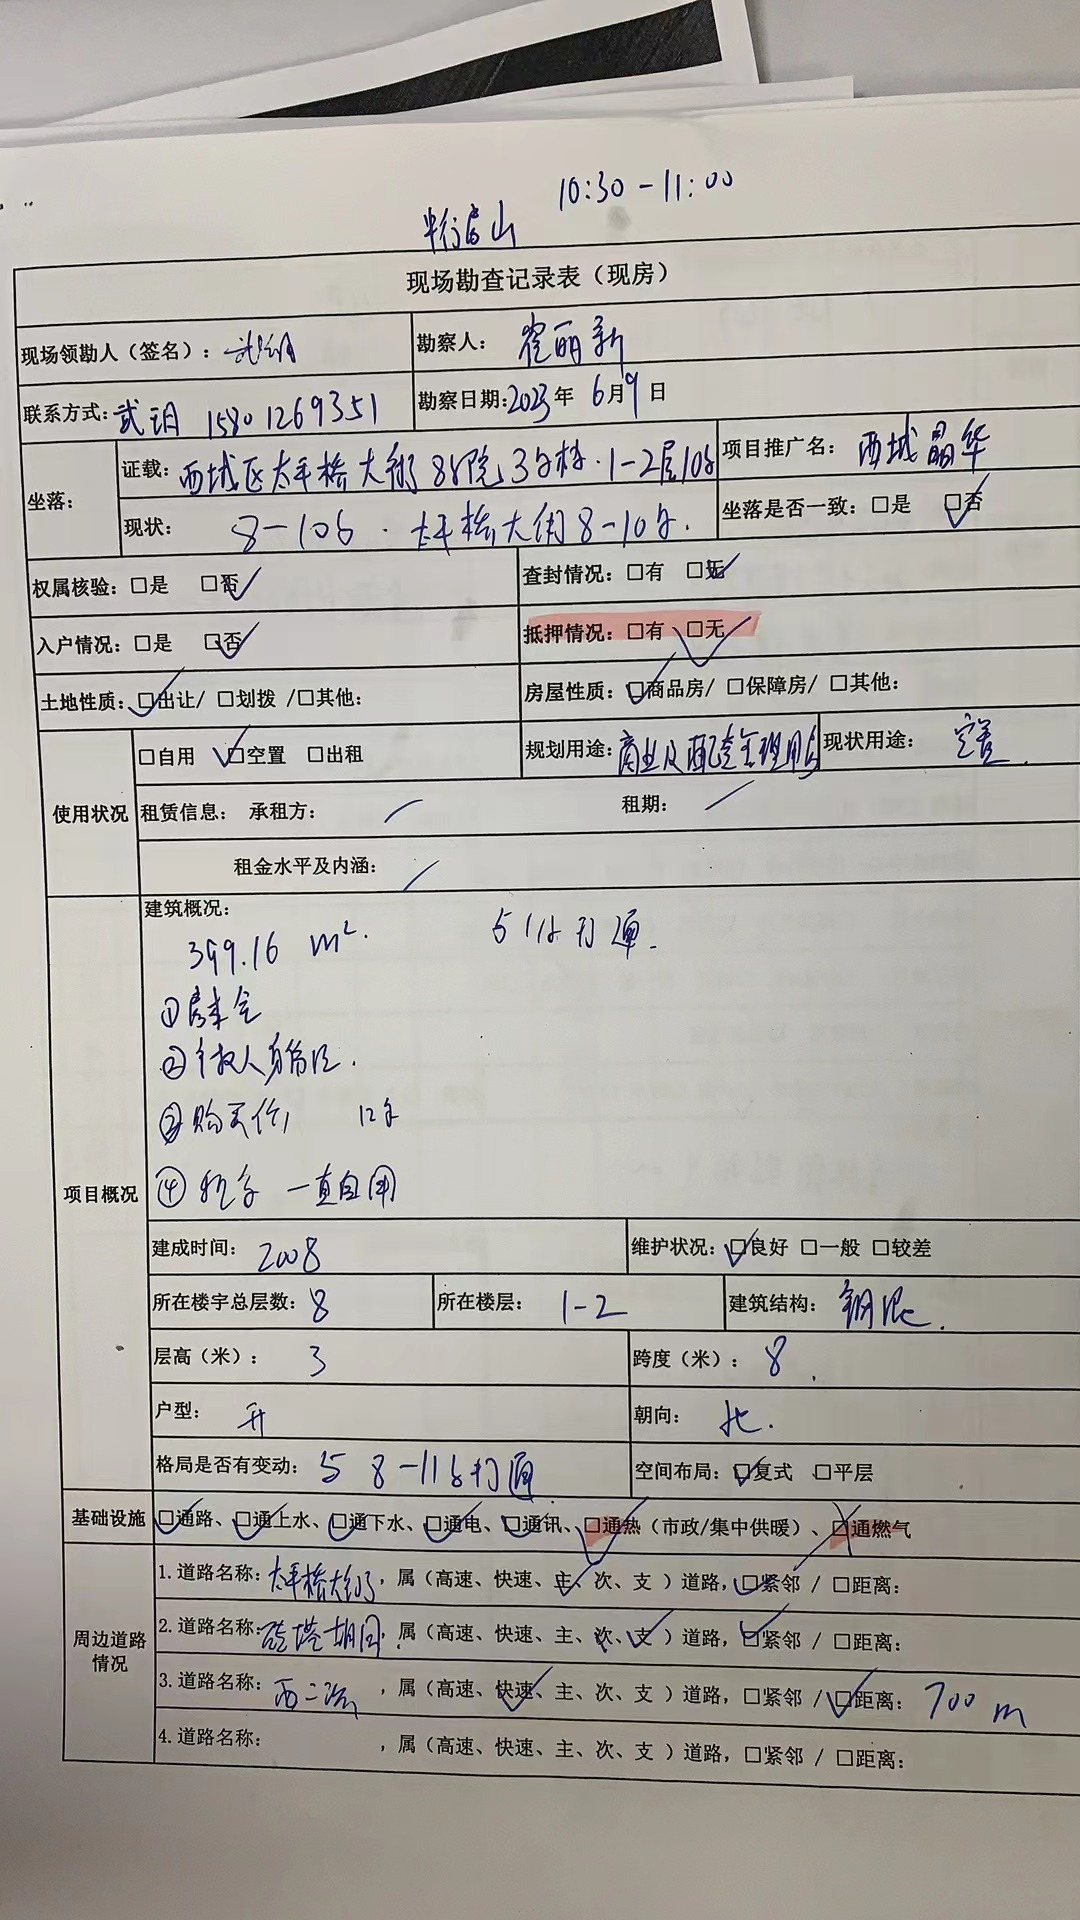 10:30-11:00
现场勘查记录表（现房）
现场领勘人（签名）： 勘察人： 崔丽新
联系方式: 武玥 15801269351 勘察日期:2023年 6月9日
坐落： 证载: 西城区太平桥大街8号院3号楼.1-2层10号 项目推广名： 西城晶华
现状： 8-10号. 太平桥大街8-10号. 坐落是否一致：□是 □否✓
权属核验: □是 □否✓ 查封情况: □有 □无✓
入户情况: □是 □否✓ 抵押情况: □有 □无✓
土地性质: □✓出让/ □划拨 /□其他: 房屋性质: □✓商品房/ □保障房/ □其他:
使用状况 □自用 □✓空置 □出租 规划用途: 商业及配套 现状用途： 空置.
租赁信息: 承租方: / 租期: /
租金水平及内涵: /
项目概况 建筑概况:
399.16 m². 与11号打通.
①房本
② 人身份证.
③购买价 12年
④ 一直自用
建成时间: 2008 维护状况: □✓良好 □一般 □较差
所在楼宇总层数: 8 所在楼层: 1-2 建筑结构: 钢混.
层高（米）: 3 跨度（米）: 8
户型: 开 朝向: 北.
格局是否有变动: 与8-11号打通 空间布局: □✓复式 □平层
基础设施 □✓通路、□✓通上水、□✓通下水、□✓通电、□✓通讯、□✓通热（市政/集中供暖）、□通燃气
周边道路情况 1.道路名称: 太平桥大街 ，属（高速、快速、主✓、次、支 ）道路，□✓紧邻 / □距离:
2.道路名称: 砖塔胡同. ，属（高速、快速、主、次、支✓ ）道路，□✓紧邻 / □距离:
3.道路名称: 西二环 ，属（高速、快速✓、主、次、支 ）道路，□紧邻 / □✓距离: 700 m
4.道路名称: ，属（高速、快速、主、次、支 ）道路，□紧邻 / □距离: